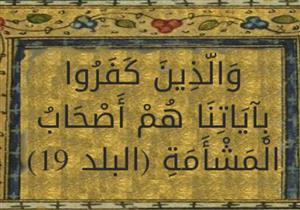 وَالَّذِينَ كَفَرُوا
بِآيَاتِنَا هُمْ أَصْحَابُ
الْمَشْأَمَةِ (البلد 19)